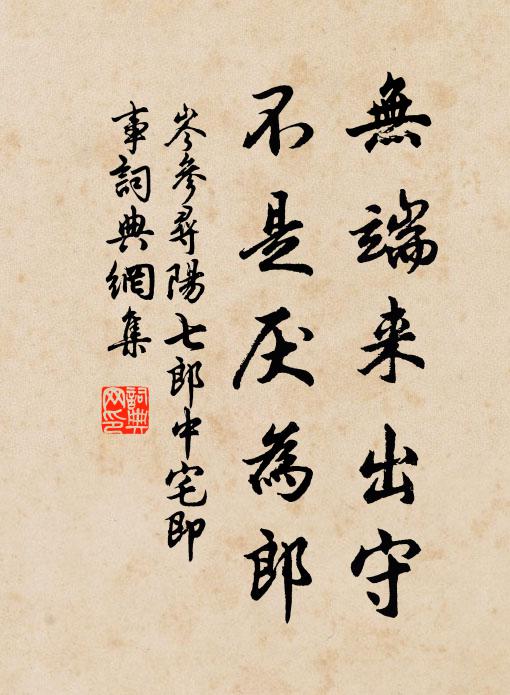 無端来出守
不是厌為郎
岑參尋陽七郎中宅即
事詞典網集
詞典
网印